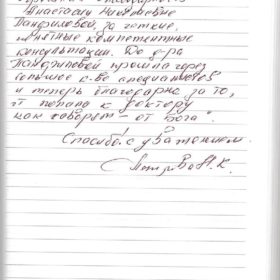 Анастасии Ни
Панфиловой, за чёткие,
понятные компетентные
консультации. До д-ра
Панфиловой прошла через
большое к-во специалистов
и теперь благодарна за то,
попала к доктору
как говорят – от Бога".
Спасибо. с уважением.